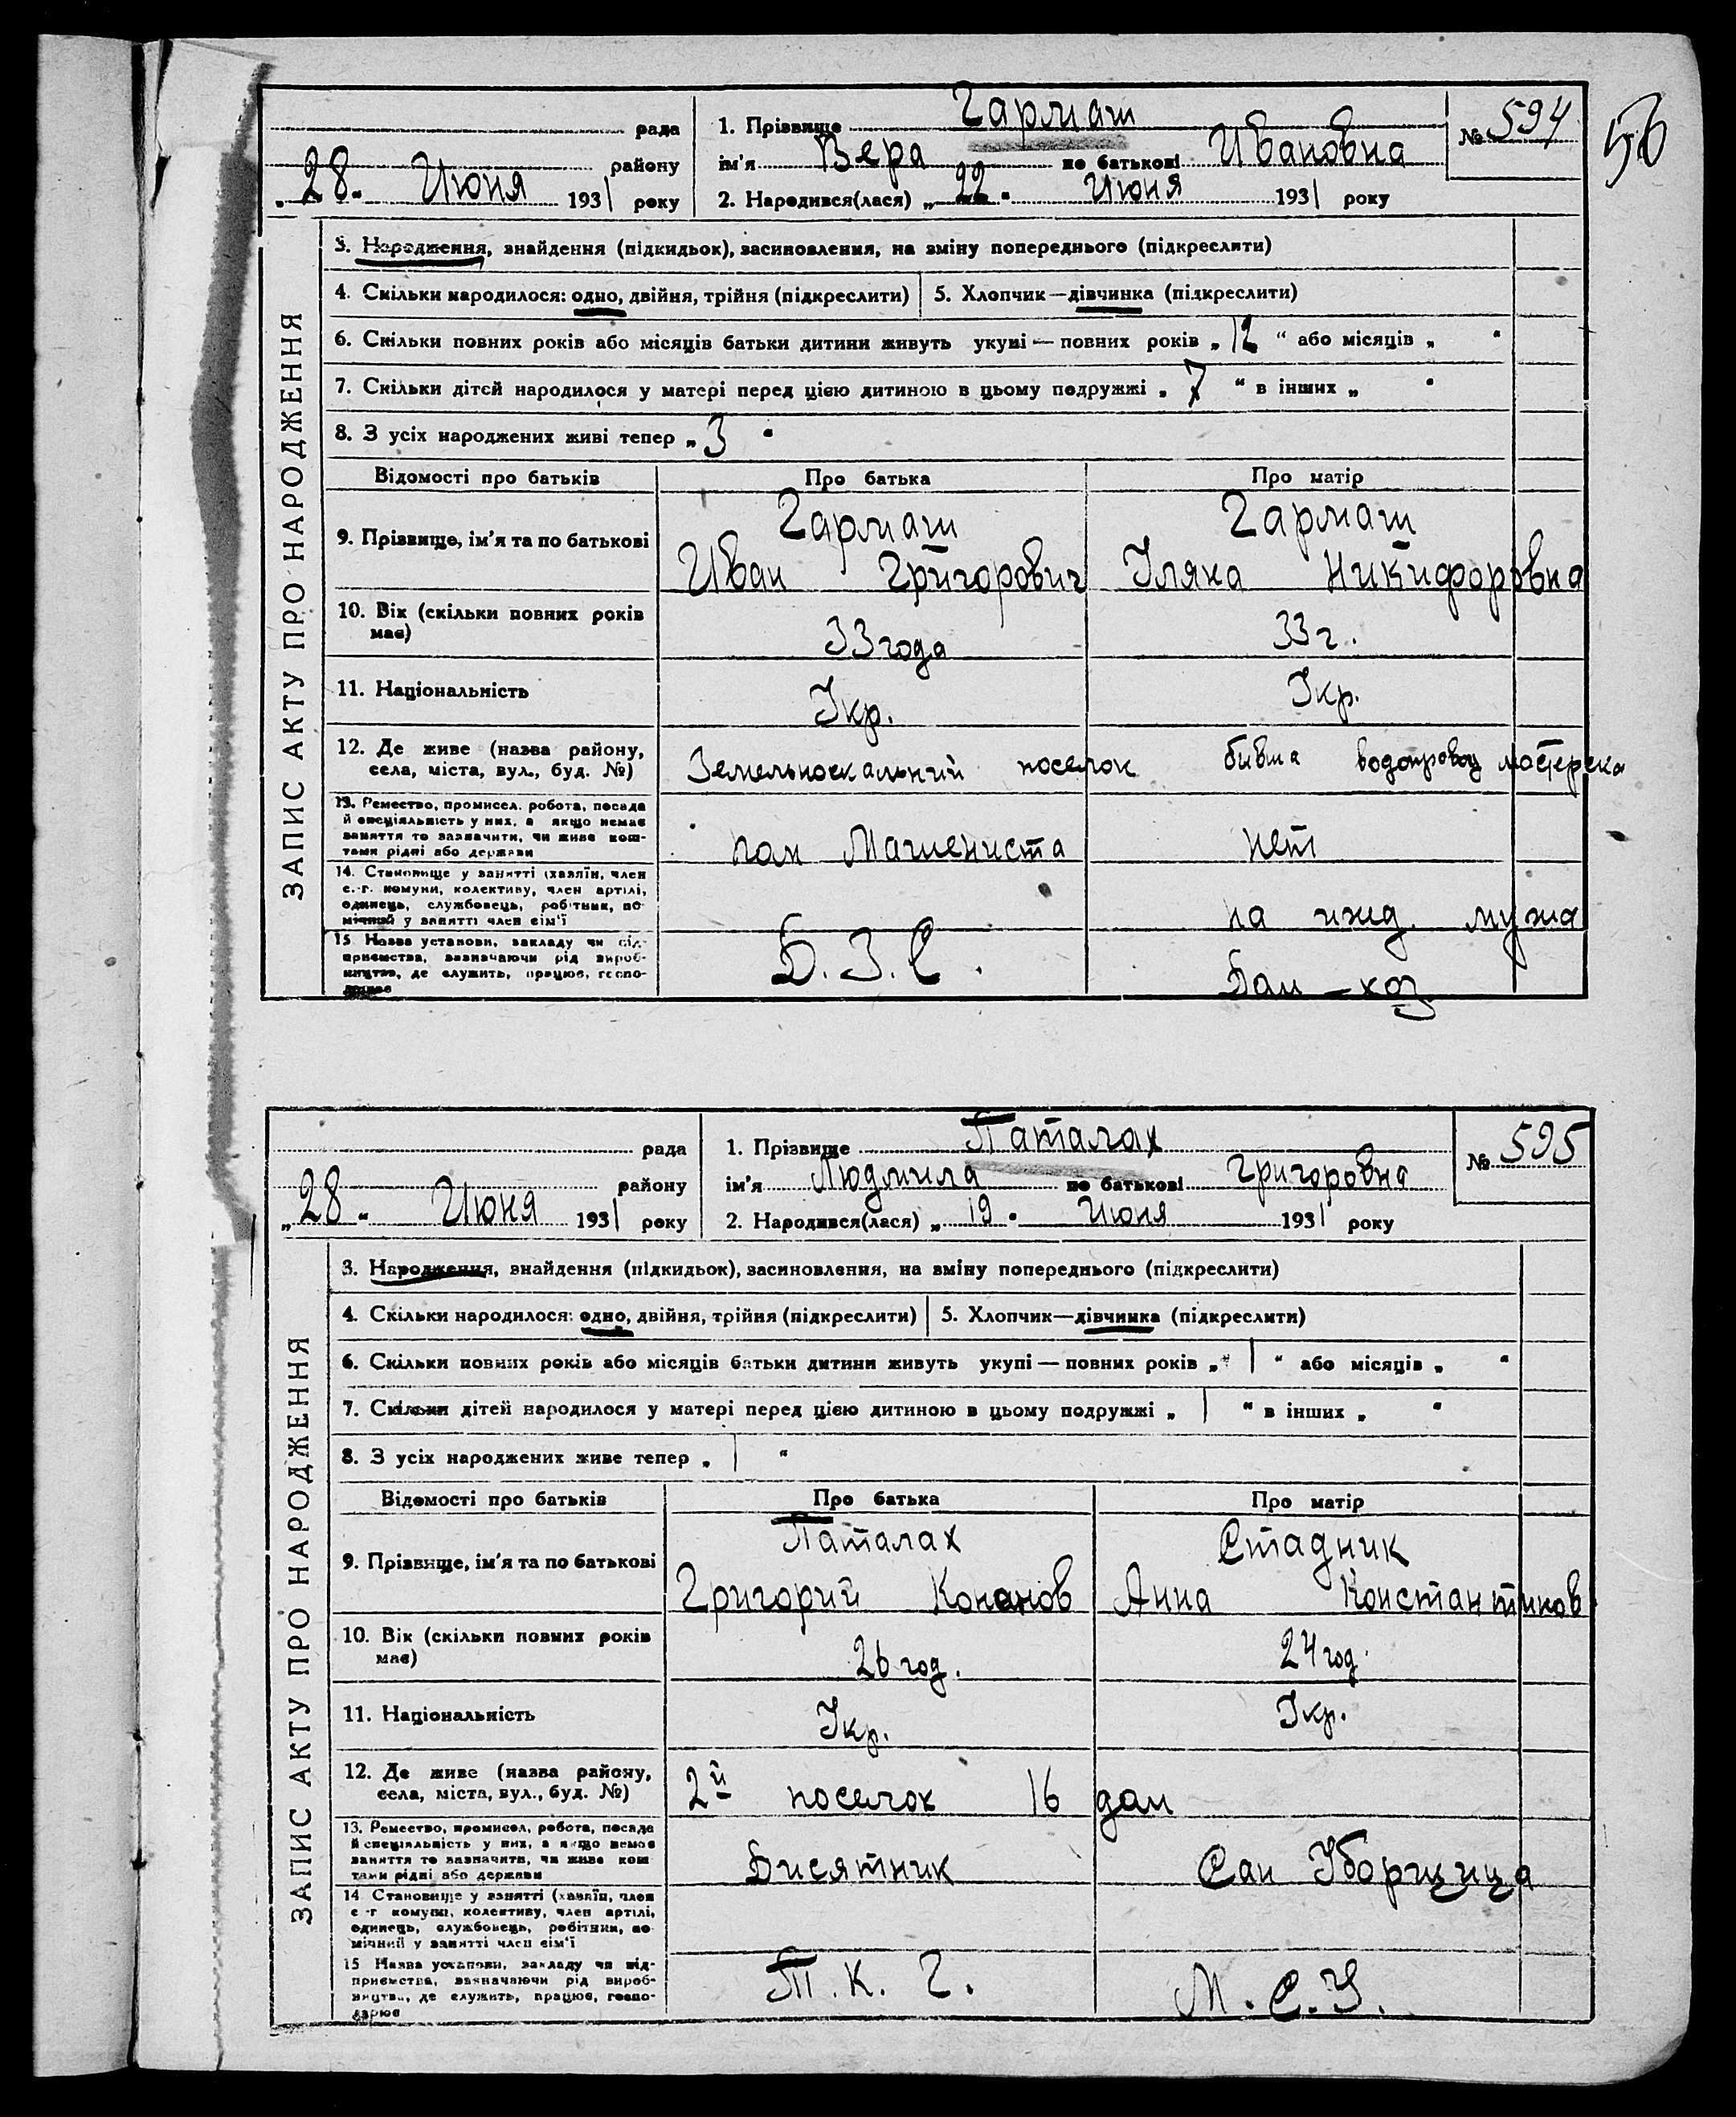 56
рада
району
„28“ Июня 1931 року
1. Прізвище Гармаш
ім'я Вера по батькові Ивановна
2. Народився(лася) „22“ Июня 1931 року
№ 594
ЗАПИС АКТУ ПРО НАРОДЖЕННЯ
3. Народження, знайдення (підкидьок), засиновлення, на зміну попереднього (підкреслити)
4. Скільки народилося: одно, двійня, трійня (підкреслити)
5. Хлопчик—дівчинка (підкреслити)
6. Скільки повних років або місяців батьки дитини живуть укупі — повних років „12“ або місяців „ “
7. Скільки дітей народилося у матері перед цією дитиною в цьому подружжі „7“ в інших „ “
8. З усіх народжених живі тепер „3“
Відомості про батьків
Про батька
Про матір
9. Прізвище, ім'я та по батькові
Гармаш
Иван Григорович
Гармаш
Уляна Никифоровна
10. Вік (скільки повних років
має)
33 года
33 г.
11. Національність
Укр.
Укр.
12. Де живе (назва району,
села, міста, вул., буд. №)
Земельноскальний поселок бивша водопровод мастерска
13. Ремество, промисел, робота, посада
й спеціяльність у них, а якщо немає
заняття то зазначити, чи живе кош-
тами рідні або держави
пом Машениста
нет
14. Становище у занятті (хазяїн, член
с.-г. комуни, колективу, член артілі,
одинець, службовець, робітник, по-
мічний у занятті член сім'ї
на ижд. мужа
15 Назва установи, закладу чи під-
приємства, зазначаючи рід вироб-
ництва, де служить, працює, госпо-
дарює
Д.З.С.
Дом-хоз
рада
району
„28“ Июня 1931 року
1. Прізвище Паталах
ім'я Людмила по батькові Григоровна
2. Народився(лася) „19“ Июня 1931 року
№ 595
ЗАПИС АКТУ ПРО НАРОДЖЕННЯ
3. Народження, знайдення (підкидьок), засиновлення, на зміну попереднього (підкреслити)
4. Скільки народилося: одно, двійня, трійня (підкреслити)
5. Хлопчик—дівчинка (підкреслити)
6. Скільки повних років або місяців батьки дитини живуть укупі — повних років „1“ або місяців „ “
7. Скільки дітей народилося у матері перед цією дитиною в цьому подружжі „1“ в інших „ “
8. З усіх народжених живе тепер „1“
Відомості про батьків
Про батька
Про матір
9. Прізвище, ім'я та по батькові
Паталах
Григорий Кононов
Стадник
Анна Константинов
10. Вік (скільки повних років
має)
26 год.
24 год.
11. Національність
Укр.
Укр.
12. Де живе (назва району,
села, міста, вул., буд. №)
2й поселок 16 дом
13. Ремество, промисел, робота, посада
й спеціяльність у них, а якщо немає
заняття то зазначити, чи живе кош-
тами рідні або держави
Дисятник
Сан Уборщица
14 Становище у занятті (хазяїн, член
с.-г комуни, колективу, член артілі,
одинець, службовець, робітник, по-
мічний у занятті член сім'ї
15 Назва установи, закладу чи під-
приємства, зазначаючи рід вироб-
ництва, де служить, працює, госпо-
дарює
П.К.Г.
М.С.У.